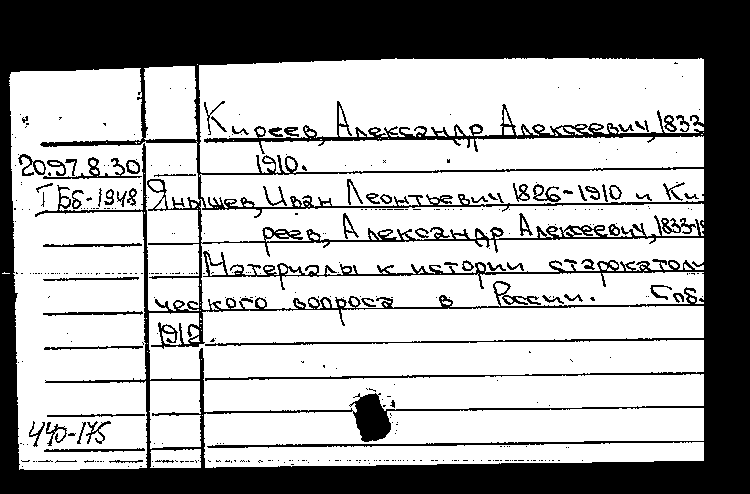 Киреев, Александр Алексеевич, 1833
20.97.8.30 1910.
I Бб-1948 Янышев, Иван Леонтьевич, 1826-1910 и Ки-
реев, Александр Алексеевич, 1833-19
Материалы к истории старокатоли
ческого вопроса в России. Спб.
1912.
440-175